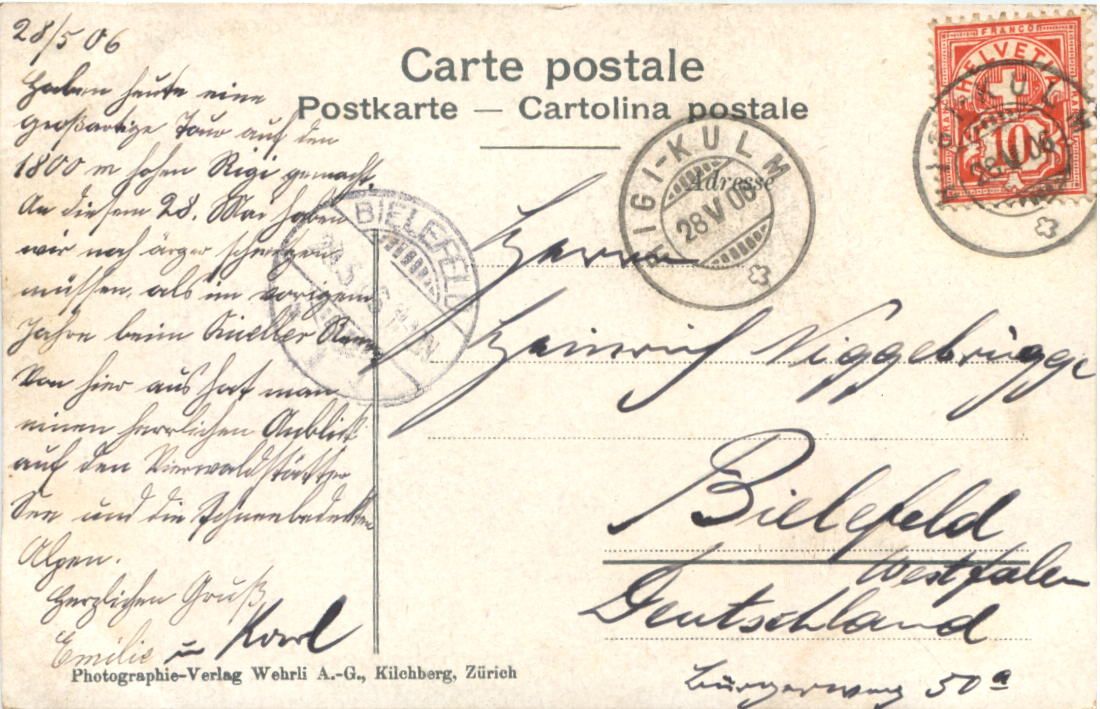 28/5 06
Haben heute eine
großartige Tour auf den
1800 m hohen Rigi gemacht.
An diesem 28. Mai haben
wir noch ärger
müssen, als im vorigen
Jahre beim
Von hier aus hat man
einen herrlichen Anblick
auf den Vierwaldstätter
See und die Schneebedeckten
Alpen.
Herzlichen Gruß
Emilie u Karl
Carte postale
Postkarte — Cartolina postale
Adresse
Herrn
Heinrich Niggebrügge
Bielefeld
Westfalen
Deutschland
Bürgerweg 50a
FRANCO
HELVETIA
10
RIGI-KULM
28 V 06
RIGI-KULM
28 V 06
BIELEFELD
Photographie-Verlag Wehrli A.-G., Kilchberg, Zürich